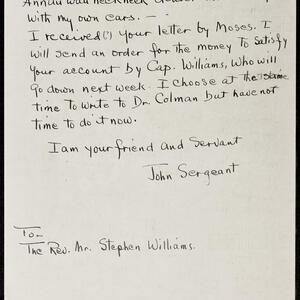 with my own ears. —
I received(?) your letter by Moses. I
will send an order for the money to satisfy
your account by Cap. Williams, who will
go down next week. I choose at the same
time to write to Dr. Colman but have not
time to do it now.
I am your friend and Servant
John Sergeant
To—
The Rev. Mr. Stephen Williams.